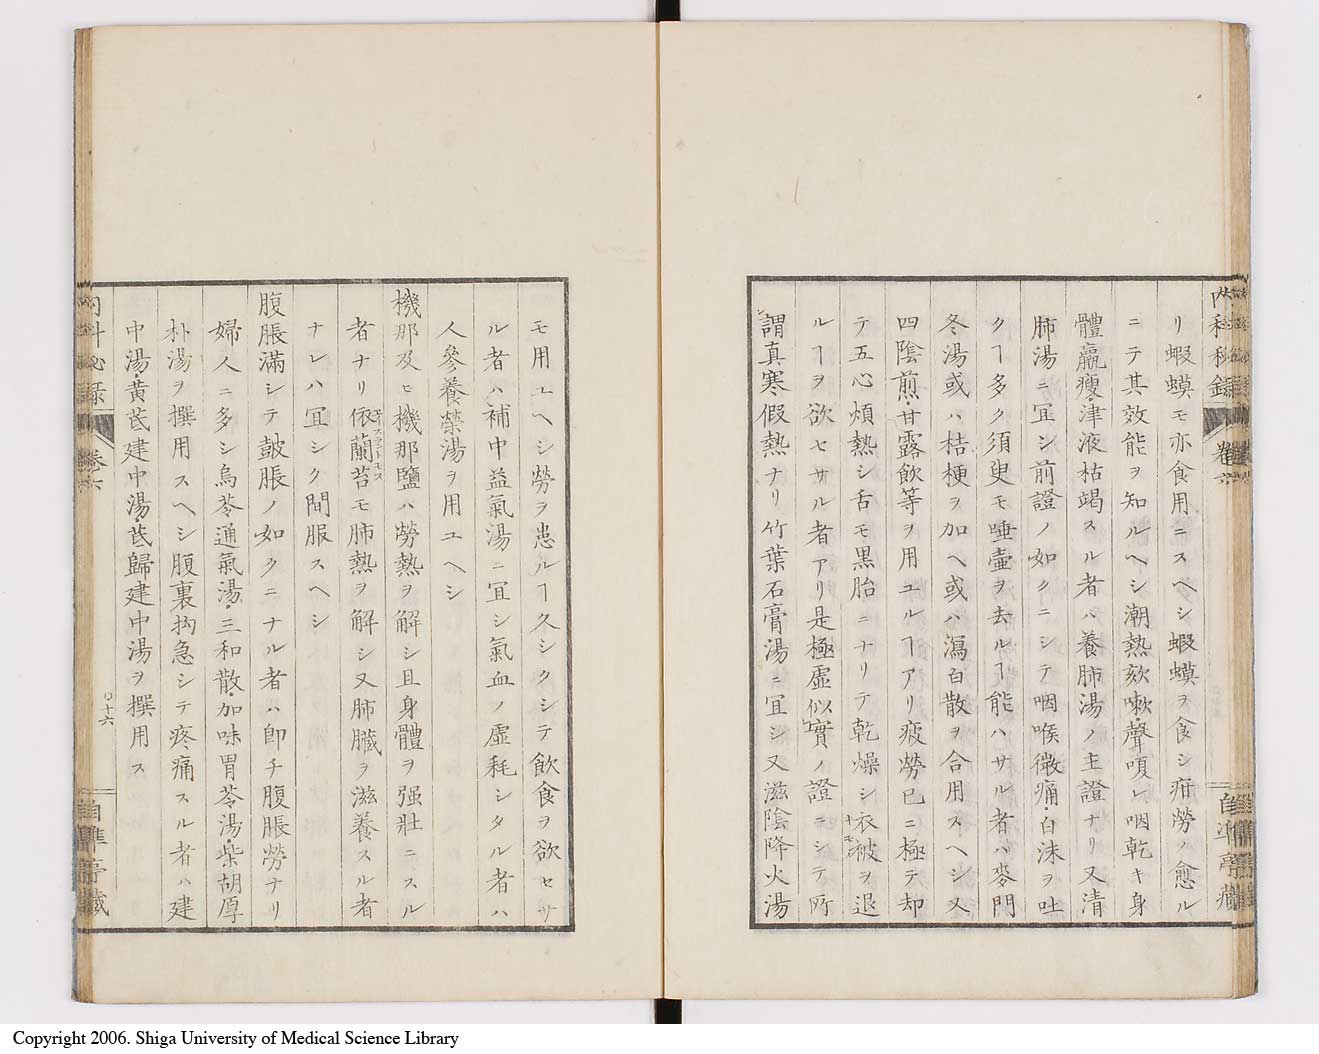 内科秘録 卷六 自準亭藏
リ蝦蟆モ亦食用ニスヘシ蝦蟆ヲ食シ疳勞ノ愈ル
ニテ其效能ヲ知ルヘシ潮熱欬嗽聲嗄レ咽乾キ身
體羸瘦津液枯竭スル者ハ養肺湯ノ主證ナリ又清
肺湯ニ宜シ前證ノ如クニシテ咽喉微痛白沫ヲ吐
クヿ多ク須臾モ唾壷ヲ去ルヿ能ハサル者ハ麥門
冬湯或ハ桔梗ヲ加ヘ或ハ瀉白散ヲ合用スヘシ又
四陰煎甘露飲等ヲ用ユルヿアリ疲勞已ニ極テ却
テ五心煩熱シ舌モ黒胎ニナリテ乾燥シ衣被ヲ退
ルヿヲ欲セサル者アリ是極虛似實ノ證ニシテ所
謂真寒假熱ナリ竹葉石膏湯ニ宜シ又滋陰降火湯
モ用ユヘシ勞ヲ患ルヿ久シクシテ飲食ヲ欲セサ
ル者ハ補中益氣湯ニ宜シ氣血ノ虛耗シタル者ハ
人參養榮湯ヲ用ユヘシ
機那及ヒ機那鹽ハ勞熱ヲ解シ且身體ヲ强壯ニスル
者ナリ依蘭苔モ肺熱ヲ解シ又肺臓ヲ滋養スル者
ナレハ宜シク間服スヘシ
腹脹滿シテ皷脹ノ如クニナル者ハ卽チ腹脹勞ナリ
婦人ニ多シ烏苓通氣湯・三和散・加味胃苓湯・柴胡厚
朴湯ヲ撰用スヘシ腹裏拘急シテ疼痛スル者ハ建
中湯・黄芪建中湯・芪歸建中湯ヲ撰用ス
内科秘録 卷六 〇十六 自準亭藏
Copyright 2006. Shiga University of Medical Science Library